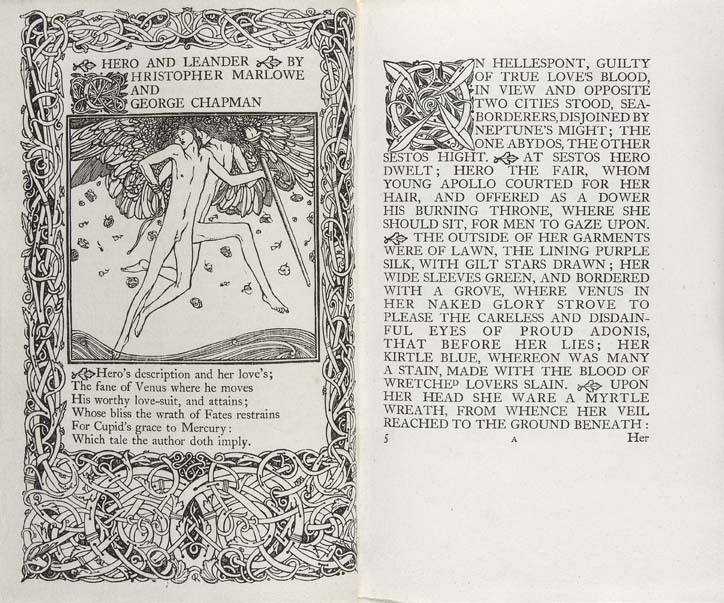 HERO AND LEANDER BY
CHRISTOPHER MARLOWE
AND
GEORGE CHAPMAN
Hero's description and her love's;
The fane of Venus where he moves
His worthy love-suit, and attains;
Whose bliss the wrath of Fates restrains
For Cupid's grace to Mercury:
Which tale the author doth imply.
ON HELLESPONT, GUILTY
OF TRUE LOVE'S BLOOD,
IN VIEW AND OPPOSITE
TWO CITIES STOOD, SEA-
BORDERERS, DISJOINED BY
NEPTUNE'S MIGHT; THE
ONE ABYDOS, THE OTHER
SESTOS HIGHT. AT SESTOS HERO
DWELT; HERO THE FAIR, WHOM
YOUNG APOLLO COURTED FOR HER
HAIR, AND OFFERED AS A DOWER
HIS BURNING THRONE, WHERE SHE
SHOULD SIT, FOR MEN TO GAZE UPON.
THE OUTSIDE OF HER GARMENTS
WERE OF LAWN, THE LINING PURPLE
SILK, WITH GILT STARS DRAWN; HER
WIDE SLEEVES GREEN, AND BORDERED
WITH A GROVE, WHERE VENUS IN
HER NAKED GLORY STROVE TO
PLEASE THE CARELESS AND DISDAIN-
FUL EYES OF PROUD ADONIS,
THAT BEFORE HER LIES; HER
KIRTLE BLUE, WHEREON WAS MANY
A STAIN, MADE WITH THE BLOOD OF
WRETCHED LOVERS SLAIN. UPON
HER HEAD SHE WARE A MYRTLE
WREATH, FROM WHENCE HER VEIL
REACHED TO THE GROUND BENEATH:
5 A Her